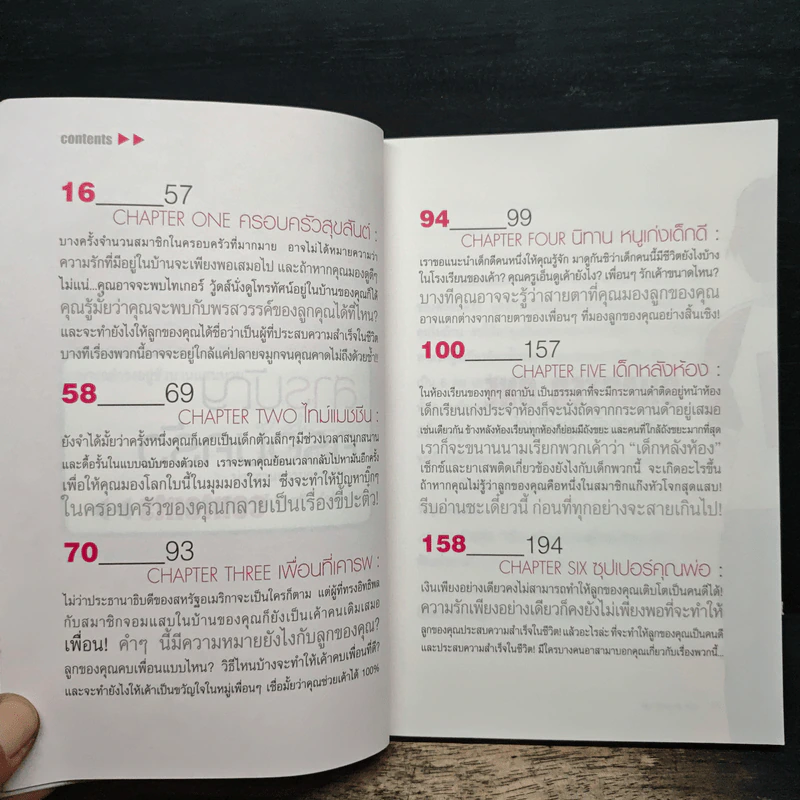 contents
16_____57
CHAPTER ONE ครอบครัวสุขสันต์ :
บางครั้งจำนวนสมาชิกในครอบครัวที่มากมาย อาจไม่ได้หมายความว่า
ความรักที่มีอยู่ในบ้านจะเพียงพอเสมอไป และถ้าหากคุณมองดูดีๆ
ไม่แน่...คุณอาจจะพบไทเกอร์ วู้ดส์นั่งดูโทรทัศน์อยู่ในบ้านของคุณก็ได้
คุณรู้มั้ยว่าคุณจะพบกับพรสวรรค์ของลูกคุณได้ที่ไหน?
และจะทำยังไงให้ลูกของคุณได้ชื่อว่าเป็นผู้ที่ประสบความสำเร็จในชีวิต
บางทีเรื่องพวกนี้อาจจะอยู่ใกล้แค่ปลายจมูกจนคุณคาดไม่ถึงด้วยซ้ำ!
58_____69
CHAPTER TWO ไทม์แมชชีน :
ยังจำได้มั้ยว่าครั้งหนึ่งคุณก็เคยเป็นเด็กตัวเล็กๆ มีช่วงเวลาสนุกสนาน
และดื้อรั้นในแบบฉบับของตัวเอง เราจะพาคุณย้อนเวลากลับไปหามันอีกครั้ง
เพื่อให้คุณมองโลกใบนี้ในมุมมองใหม่ ซึ่งจะทำให้ปัญหาบิ๊กๆ
ในครอบครัวของคุณกลายเป็นเรื่องขี้ปะติ๋ว!
70_____93
CHAPTER THREE เพื่อนที่เคารพ :
ไม่ว่าประธานาธิบดีของสหรัฐอเมริกาจะเป็นใครก็ตาม แต่ผู้ที่ทรงอิทธิพล
กับสมาชิกจอมแสบในบ้านของคุณก็ยังเป็นเค้าคนเดิมเสมอ
เพื่อน! คำๆ นี้มีความหมายยังไงกับลูกของคุณ?
ลูกของคุณคบเพื่อนแบบไหน? วิธีไหนบ้างจะทำให้เค้าคบเพื่อนที่ดี?
และจะทำยังไงให้เค้าเป็นขวัญใจในหมู่เพื่อนๆ เชื่อมั้ยว่าคุณช่วยเค้าได้ 100%
94_____99
CHAPTER FOUR นิทาน หนูเก่งเด็กดี :
เราขอแนะนำเด็กดีคนหนึ่งให้คุณรู้จัก มาดูกันซิว่าเด็กคนนี้มีชีวิตยังไงบ้าง
ในโรงเรียนของเค้า? คุณครูเอ็นดูเค้ายังไง? เพื่อนๆ รักเค้าขนาดไหน?
บางทีคุณอาจจะรู้ว่าสายตาที่คุณมองลูกของคุณ
อาจแตกต่างจากสายตาของเพื่อนๆ ที่มองลูกของคุณอย่างสิ้นเชิง!
100_____157
CHAPTER FIVE เด็กหลังห้อง :
ในห้องเรียนของทุกๆ สถาบัน เป็นธรรมดาที่จะมีกระดานดำติดอยู่หน้าห้อง
เด็กเรียนเก่งประจำห้องก็จะนั่งถัดจากกระดานดำอยู่เสมอ
เช่นเดียวกัน ข้างหลังห้องเรียนทุกห้องก็ย่อมมีถังขยะ และคนที่ใกล้ถังขยะมากที่สุด
เราก็จะขนานนามเรียกพวกเค้าว่า "เด็กหลังห้อง"
เซ็กซ์และยาเสพติดเกี่ยวข้องยังไงกับเด็กพวกนี้ จะเกิดอะไรขึ้น
ถ้าหากคุณไม่รู้ว่าลูกของคุณคือหนึ่งในสมาชิกแก๊งหัวโจกสุดแสบ!
รีบอ่านซะเดี๋ยวนี้ ก่อนที่ทุกอย่างจะสายเกินไป!
158_____194
CHAPTER SIX ซุปเปอร์คุณพ่อ :
เงินเพียงอย่างเดียวคงไม่สามารถทำให้ลูกของคุณเติบโตเป็นคนดีได้!
ความรักเพียงอย่างเดียวก็คงยังไม่เพียงพอที่จะทำให้
ลูกของคุณประสบความสำเร็จในชีวิต! แล้วอะไรล่ะ ที่จะทำให้ลูกของคุณเป็นคนดี
และประสบความสำเร็จในชีวิต! มีใครบางคนอาสามาบอกคุณเกี่ยวกับเรื่องพวกนี้...